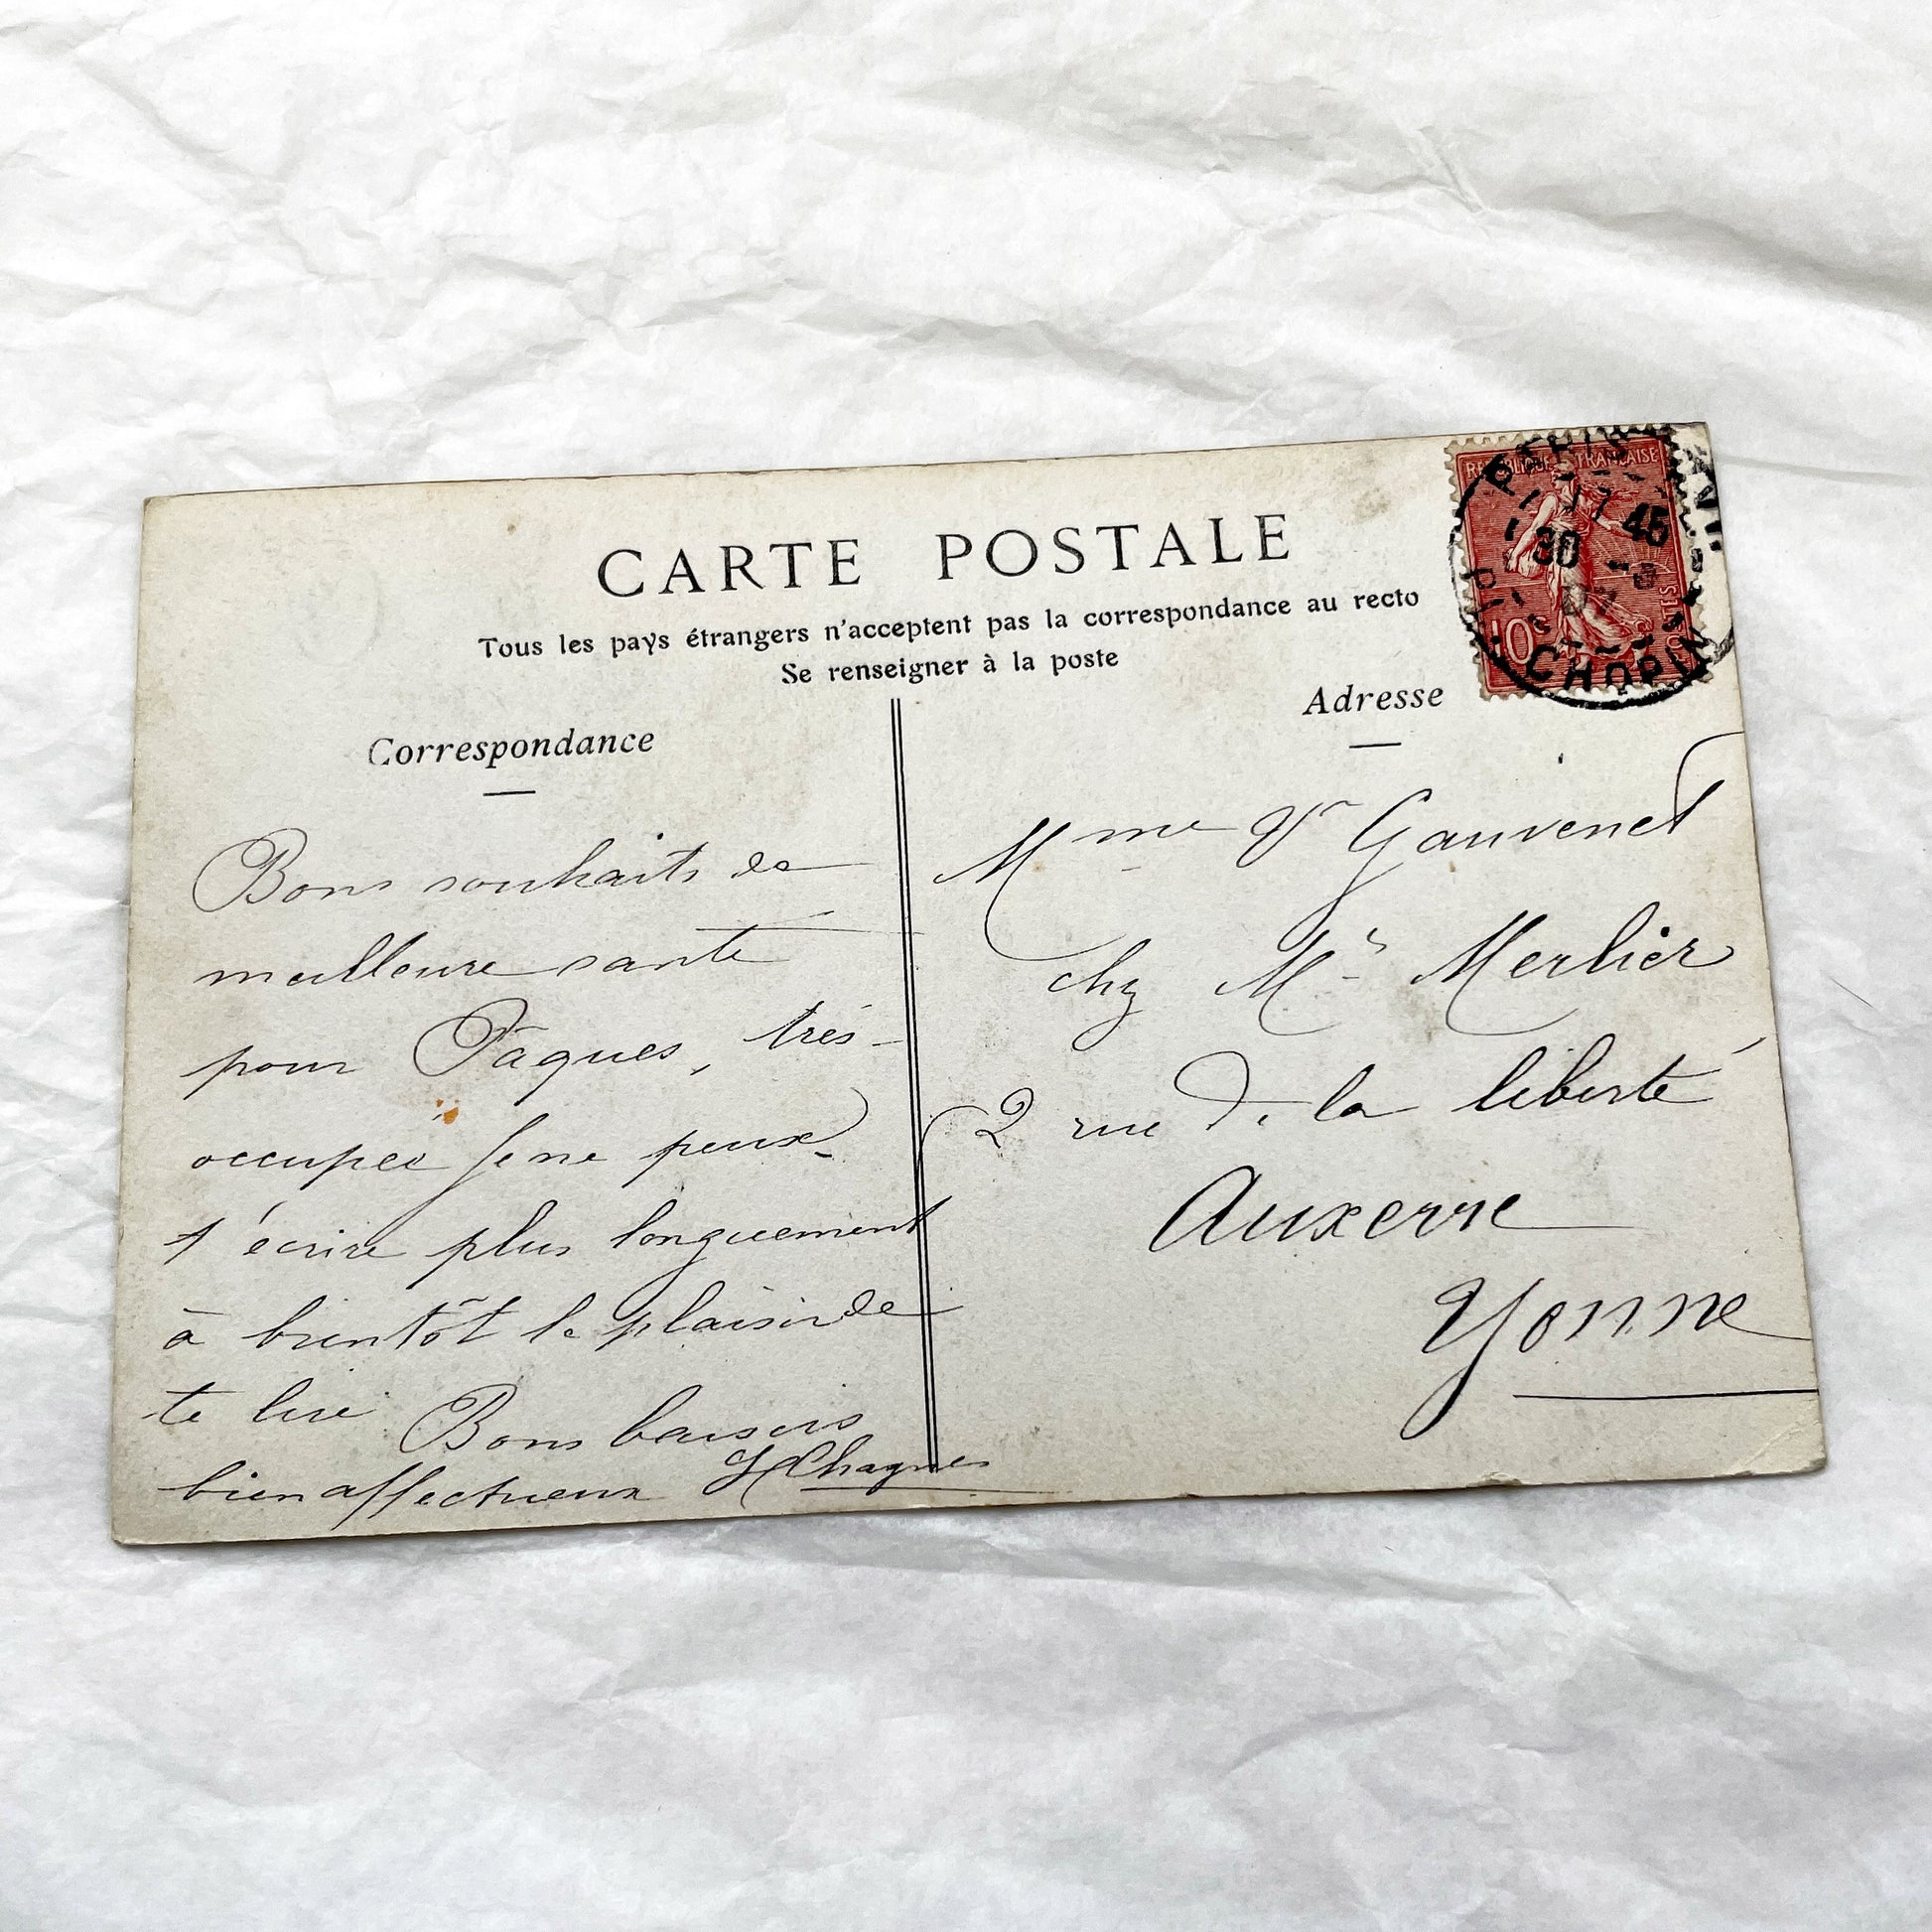 CARTE POSTALE
Tous les pays étrangers n'acceptent pas la correspondance au recto
Se renseigner à la poste
Correspondance
Bons souhaits de
meilleure santé
pour Pâques, très
occupée je ne peux
t'écrire plus longuement
à bientôt le plaisir de
te lire Bons baisers
bien affectueux
Adresse
Mme Vve Gauvenet
chez Mr Merlier
2 rue de la liberté
Auxerre
Yonne
REPUBLIQUE FRANÇAISE
10
17 45
30 -3
07
CHOPIN